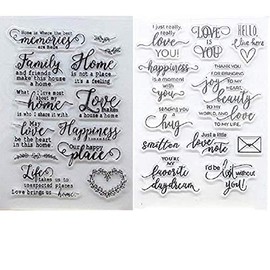 Home is where the best
memories
are made
Family
and friends
make this house
a home
Home
is not a place
it's a feeling
What I love most
about my
home
is who I share it with
Love
makes
a house
a home
May
love
be the heart
in this home
Happiness
is
homemade
Our
happy
place
Life
takes us to
unexpected places
Love brings us home
I just really
really
love
YOU!
Love
is
YOU!
Hello,
live here
happiness
is a moment
with
you
THANK YOU
FOR BRINGING
joy
TO MY
HEART,
beauty
TO MY
WORLD, AND
love
TO MY LIFE.
SENDING YOU
a
hug
smitten
Just a little
love
note
YOU'RE
MY
favorite
daydream
I'd be
lost without
you!